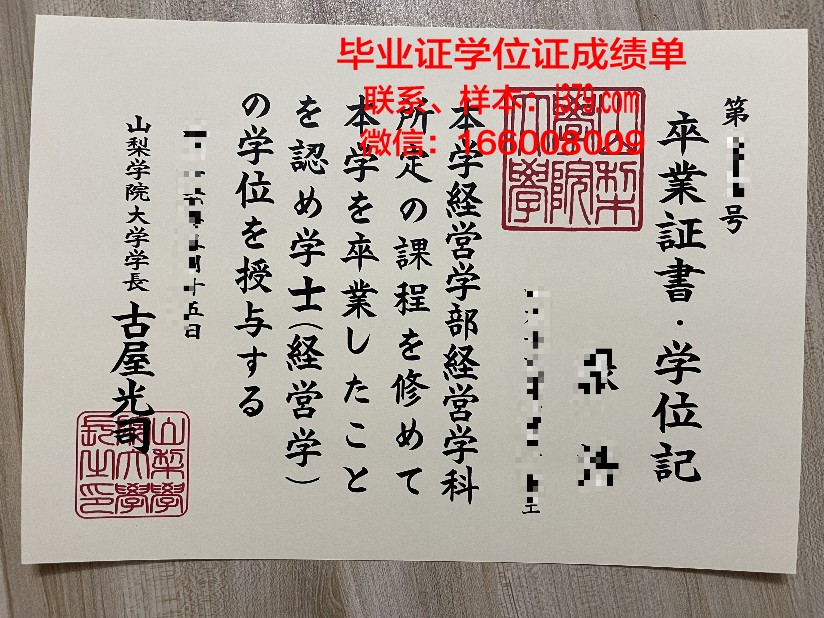 毕业证学位证成绩单
联系、样本：j379.com
微信：166008009
第
号
卒業証書・学位記
本学経営学部経営学科
所定の課程を修めて
本学を卒業したこと
を認め学士（経営学）
の学位を授与する
月十五日
山梨学院大学学長 古屋光司
山梨學院大學
山梨學院大學長之印